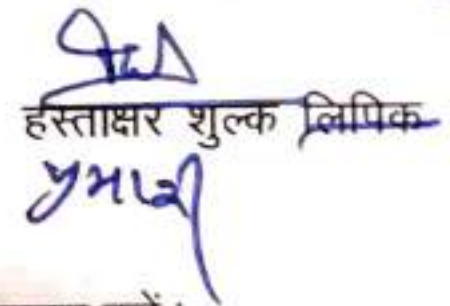 हस्ताक्षर शुल्क लिपिक
प्रभारी